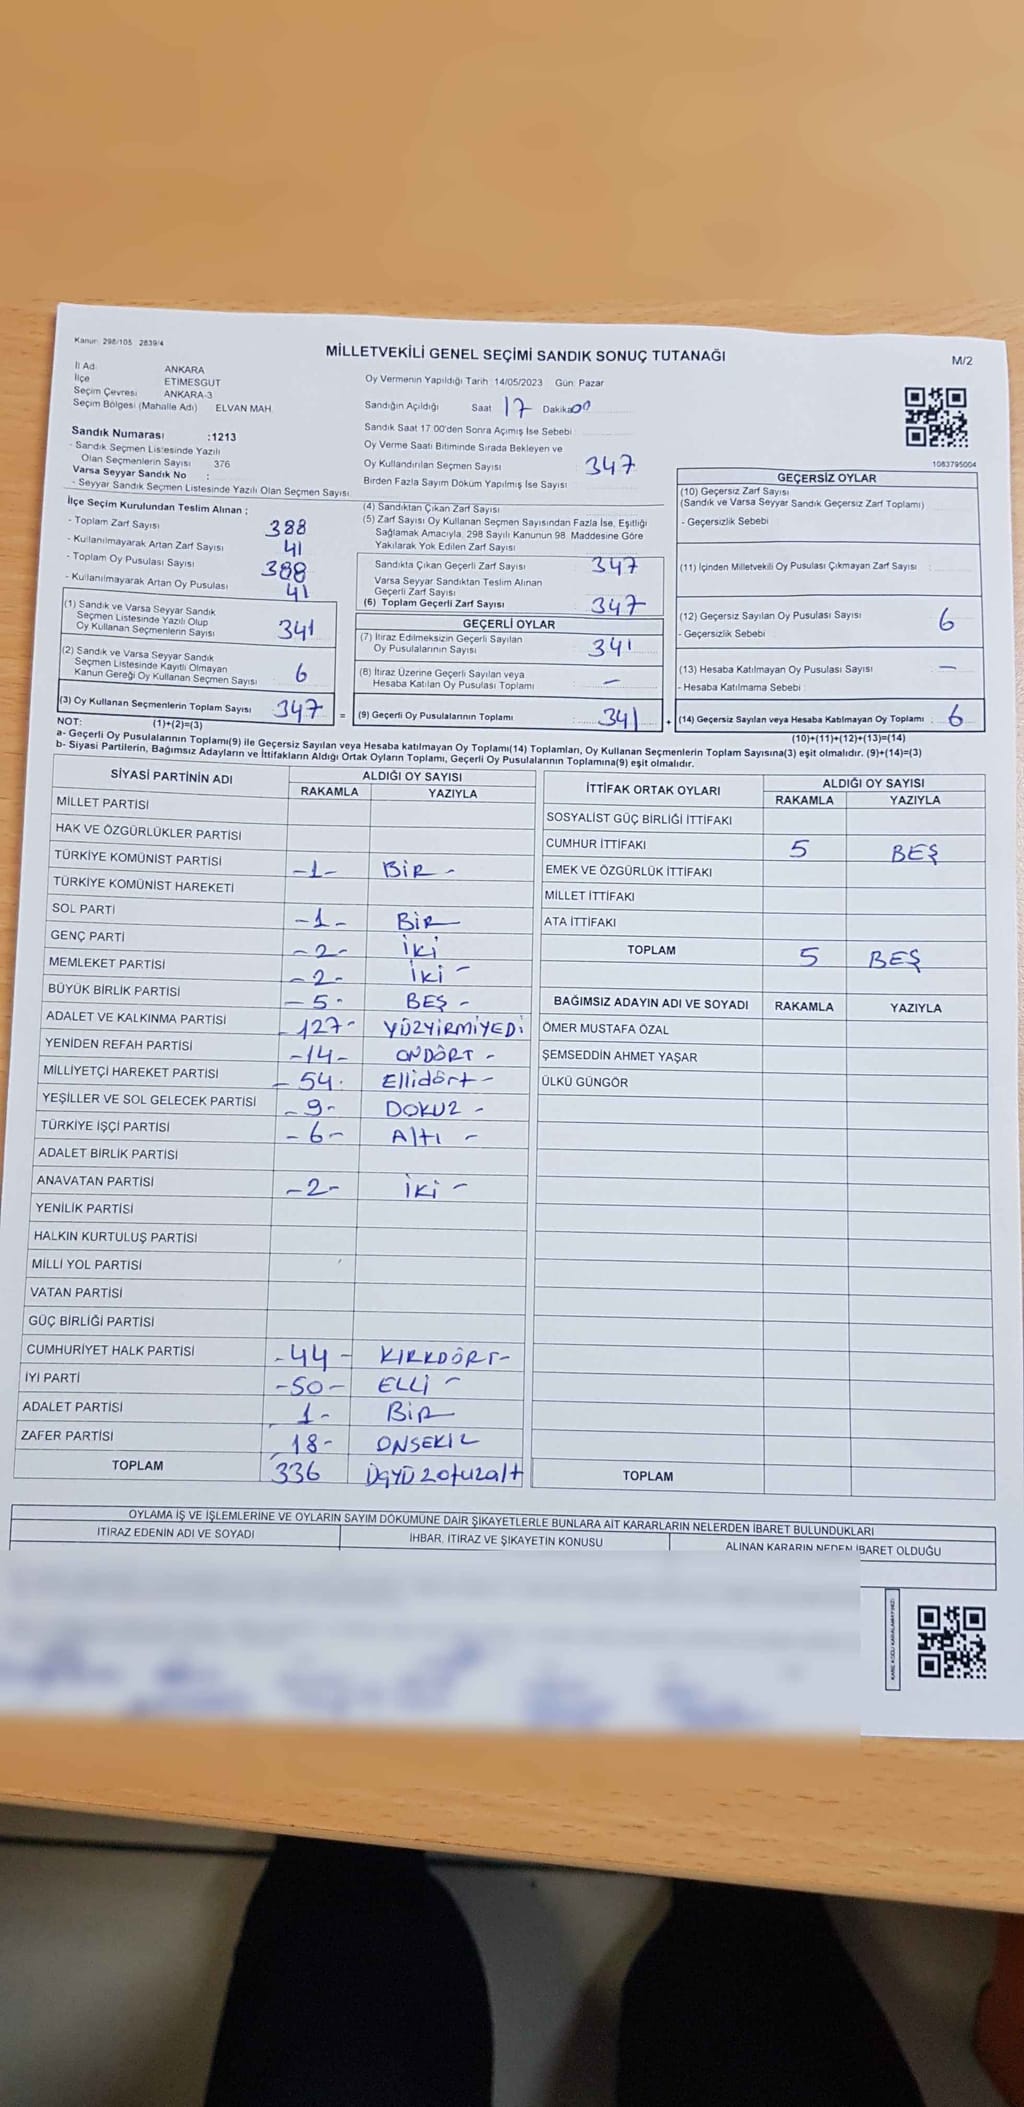 Kanun: 298/105 2839/4
MİLLETVEKİLİ GENEL SEÇİMİ SANDIK SONUÇ TUTANAĞI
M/2
İl Adı ANKARA
İlçe ETİMESGUT
Seçim Çevresi ANKARA-3
Seçim Bölgesi (Mahalle Adı) ELVAN MAH.
Oy Vermenin Yapıldığı Tarih: 14/05/2023 Gün: Pazar
Sandığın Açıldığı Saat 17 Dakika 00
Sandık Saat 17:00'den Sonra Açılmış İse Sebebi
Oy Verme Saati Bitiminde Sırada Bekleyen ve
Oy Kullandırılan Seçmen Sayısı : 347
Birden Fazla Sayım Döküm Yapılmış İse Sayısı
Sandık Numarası :1213
- Sandık Seçmen Listesinde Yazılı
Olan Seçmenlerin Sayısı 376
Varsa Seyyar Sandık No :
- Seyyar Sandık Seçmen Listesinde Yazılı Olan Seçmen Sayısı
1083795004
İlçe Seçim Kurulundan Teslim Alınan ;
- Toplam Zarf Sayısı 388
- Kullanılmayarak Artan Zarf Sayısı 41
- Toplam Oy Pusulası Sayısı 388
- Kullanılmayarak Artan Oy Pusulası 41
(1) Sandık ve Varsa Seyyar Sandık
Seçmen Listesinde Yazılı Olup
Oy Kullanan Seçmenlerin Sayısı 341
(2) Sandık ve Varsa Seyyar Sandık
Seçmen Listesinde Kayıtlı Olmayan
Kanun Gereği Oy Kullanan Seçmen Sayısı 6
(3) Oy Kullanan Seçmenlerin Toplam Sayısı 347 =
(1)+(2)=(3)
(4) Sandıktan Çıkan Zarf Sayısı
(5) Zarf Sayısı Oy Kullanan Seçmen Sayısından Fazla İse, Eşitliği
Sağlamak Amacıyla, 298 Sayılı Kanunun 98. Maddesine Göre
Yakılarak Yok Edilen Zarf Sayısı
Sandıkta Çıkan Geçerli Zarf Sayısı 347
Varsa Seyyar Sandıktan Teslim Alınan
Geçerli Zarf Sayısı
(6) Toplam Geçerli Zarf Sayısı 347
GEÇERLİ OYLAR
(7) İtiraz Edilmeksizin Geçerli Sayılan
Oy Pusulalarının Sayısı 341
(8) İtiraz Üzerine Geçerli Sayılan veya
Hesaba Katılan Oy Pusulası Toplamı -
(9) Geçerli Oy Pusulalarının Toplamı : 341 +
GEÇERSİZ OYLAR
(10) Geçersiz Zarf Sayısı
(Sandık ve Varsa Seyyar Sandık Geçersiz Zarf Toplamı)
- Geçersizlik Sebebi
(11) İçinden Milletvekili Oy Pusulası Çıkmayan Zarf Sayısı :
(12) Geçersiz Sayılan Oy Pusulası Sayısı 6
- Geçersizlik Sebebi
(13) Hesaba Katılmayan Oy Pusulası Sayısı -
- Hesaba Katılmama Sebebi
(14) Geçersiz Sayılan veya Hesaba Katılmayan Oy Toplamı : 6
(10)+(11)+(12)+(13)=(14)
NOT:
a- Geçerli Oy Pusulalarının Toplamı(9) ile Geçersiz Sayılan veya Hesaba katılmayan Oy Toplamı(14) Toplamları, Oy Kullanan Seçmenlerin Toplam Sayısına(3) eşit olmalıdır. (9)+(14)=(3)
b- Siyasi Partilerin, Bağımsız Adayların ve İttifakların Aldığı Ortak Oyların Toplamı, Geçerli Oy Pusulalarının Toplamına(9) eşit olmalıdır.
SİYASİ PARTİNİN ADI ALDIĞI OY SAYISI
RAKAMLA YAZIYLA
MİLLET PARTİSİ
HAK VE ÖZGÜRLÜKLER PARTİSİ
TÜRKİYE KOMÜNİST PARTİSİ -1- BİR -
TÜRKİYE KOMÜNİST HAREKETİ
SOL PARTİ -1- BİR
GENÇ PARTİ -2- İKİ
MEMLEKET PARTİSİ -2- İKİ -
BÜYÜK BİRLİK PARTİSİ -5- BEŞ -
ADALET VE KALKINMA PARTİSİ -127- YÜZYİRMİYEDİ
YENİDEN REFAH PARTİSİ -14- ONDÖRT -
MİLLİYETÇİ HAREKET PARTİSİ - 54. Ellidört -
YEŞİLLER VE SOL GELECEK PARTİSİ -9- DOKUZ -
TÜRKİYE İŞÇİ PARTİSİ -6- Altı -
ADALET BİRLİK PARTİSİ
ANAVATAN PARTİSİ -2- İKİ -
YENİLİK PARTİSİ
HALKIN KURTULUŞ PARTİSİ
MİLLİ YOL PARTİSİ
VATAN PARTİSİ
GÜÇ BİRLİĞİ PARTİSİ
CUMHURİYET HALK PARTİSİ -44- KIRKDÖRT-
İYİ PARTİ -50- ELLİ -
ADALET PARTİSİ 1- BİR
ZAFER PARTİSİ 18- ONSEKİZ
TOPLAM 336 ÜçYÜZotuzalt
İTTİFAK ORTAK OYLARI ALDIĞI OY SAYISI
RAKAMLA YAZIYLA
SOSYALİST GÜÇ BİRLİĞİ İTTİFAKI
CUMHUR İTTİFAKI 5 BEŞ
EMEK VE ÖZGÜRLÜK İTTİFAKI
MİLLET İTTİFAKI
ATA İTTİFAKI
TOPLAM 5 BEŞ
BAĞIMSIZ ADAYIN ADI VE SOYADI RAKAMLA YAZIYLA
ÖMER MUSTAFA ÖZAL
ŞEMSEDDİN AHMET YAŞAR
ÜLKÜ GÜNGÖR
TOPLAM
OYLAMA İŞ VE İŞLEMLERİNE VE OYLARIN SAYIM DÖKÜMÜNE DAİR ŞİKAYETLERLE BUNLARA AİT KARARLARIN NELERDEN İBARET BULUNDUKLARI
İTİRAZ EDENİN ADI VE SOYADI İHBAR, İTİRAZ VE ŞİKAYETİN KONUSU ALINAN KARARIN NEDEN İBARET OLDUĞU
KARE KODU KARALAMAYINIZ!